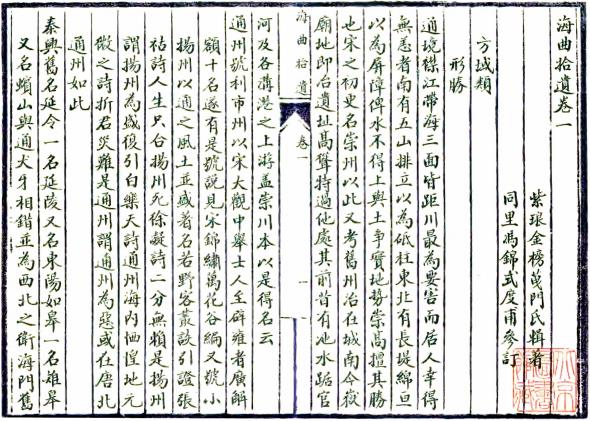 海曲拾遺卷一
紫琅金榜茂門氏輯着
同里馮錦式度甫參訂
方域類
形勝
通境襟江帶海三面皆距川最為要害而居人幸得
無恙者南有五山排立以為砥柱東北有長堤綿亘
以為屏障俾水不得上與土爭實地勢崇高擅其勝
也宋之初史名崇州以此又考舊州治在城南今嶽
廟地即治遺址高聳特過他處其前昔有池水踞官
河及各溝港之上游盖崇川本以是得名云
海曲拾遺
卷一
一
通州號利市州以宋大觀中舉士人至辟雍者廣解
額十名遂有是號說見宋錦繡萬花谷編又號小
揚州以通之風土並盛著名若野客叢談引證張
祜詩人生只合揚州死徐凝詩二分無賴是揚州
謂揚州為盛後引白樂天詩通州海內恓惶地元
微之詩折君災難是通州謂通州為惡或在唐北
通州如此
泰興舊名延令一名延陵又名東陽如皋一名雄皋
又名蠙山與通犬牙相錯並為西北之衛海門舊